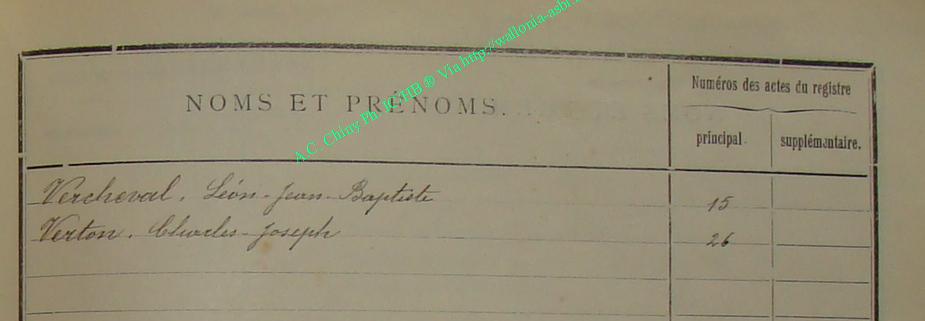 A.C. Chiny Ph ICHB ® Via http://wallonia-asbl.
NOMS ET PRÉNOMS.
Numéros des actes du registre
principal.
supplémentaire.
Vercheval, Léon-Jean-Baptiste 15
Verton, Charles-Joseph 26